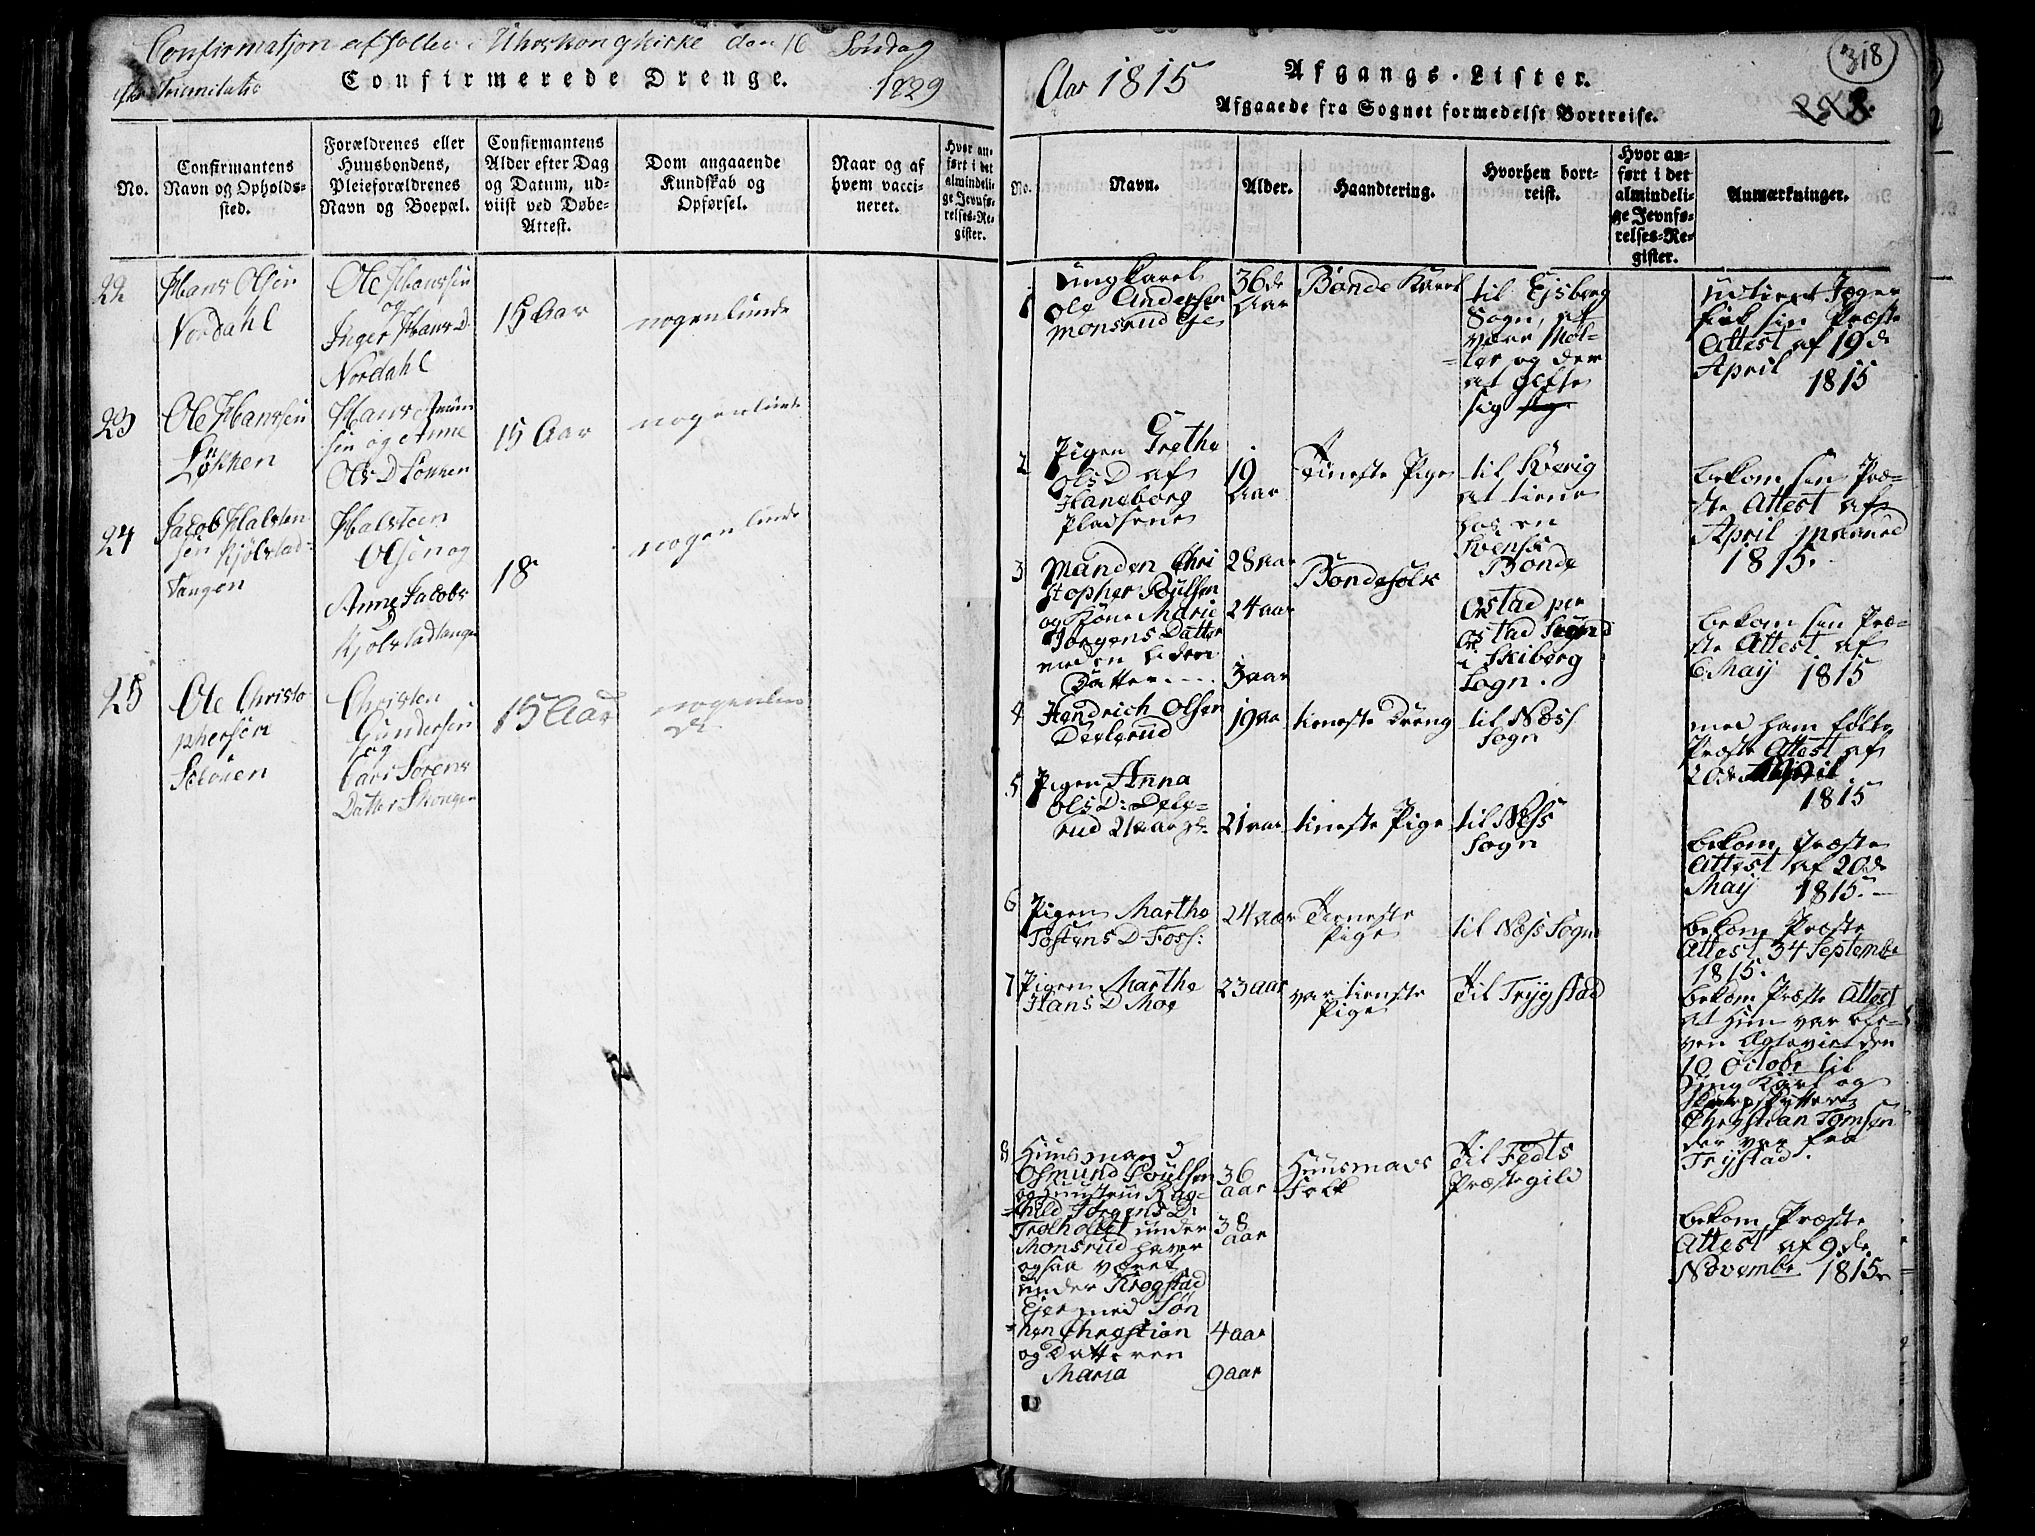 Confirmatjon afholdes i Uhrskougkirke den 16 Søndag
efter Trinitatis
Confirmerede Drenge.
1829
No.
Confirmantens
Navn og Opholds-
sted.
Forældrenes eller
Huusbondens,
Pleieforældrenes
Navn og Boepæl.
Confirmantens
Alder efter Dag
og Datum, ud-
viist ved Døbe-
Attest.
Dom angaaende
Kundskab og
Opførsel.
Naar og af
hvem vacci-
neret.
Hvor an-
ført i det
almindeli-
ge Jevnfø-
relses-Re-
gister.
22
Hans Olsen
Nordahl
Ole Hanssen
og
Inger Hans D
Nordahl
15 Aar
nogenlunde
23
Ole Hanssen
Løkken
Hans
sen og Anne
Ols D Løkken
15 Aar
nogenlunde
24
Jacob Halsten
sen Kjølstad-
tangen
Halsteen
Olsen og
Anne Jacobs
D
Kjølstadtangen
18
nogenlunde
25
Ole Christo
phersen
Christen
Gundersen
og
Kari Sørens
Datter Skongen
15 Aar
nogenlun
de
318
Aar 1815
Afgangs-Lister.
Afgaaede fra Sognet formedelst Bortreise.
No.
Navn.
Alder.
Haandtering.
Hvorhen bort-
reist.
Hvor an-
ført i det
almindeli-
ge Jevnfø-
relses-Re-
gister.
Anmærkninger.
1
Ungkarel
Ole Andersen
Monsrud Eje
36de
Aar
Bonde Karel
til Ejsberg
Sogn, at
være Møl-
ler og der
at gifte
sig
fik sin Præste
Attest af 19de
April 1815
2
Pigen Grethe
Ols D af
Haneborg
Pladsene
19
Aar
Tieneste Pige
til Sverig
at tiene
hos en
Svensk
Bonde
bekom sin Præ-
ste Attest af
April maaned
1815.
3
Manden Chri
stopher Poulsen
og Kone Marie
Jørgens Datter
med en liden
Datter....
28 aar
24 aar
3 aar
Bondefolk
i Skiberg
Sogn.
bekom sin Præ-
ste Attest af
6 May 1815
4
Hendrich Olsen
Deslerud
19 aa
tieneste Dreng
til Næss
Sogn
med ham følte
Præste Attest af
20de April
1815
5
Pigen Anna
Ols D: Desle-
rud 21 aar gl:
21 aar
tieneste Pige
til Næss
Sogn
bekom Præste
Attest af 20de
May 1815.
6
Pigen Marthe
Tostens D Foss:
24 aar
Tieneste
Pige
til Næss Sogn
bekom Præste
Attest 34 Septembr
1815.
7
Pigen Marthe
Hans D Moe
23 aar
var tieneste
Pige
Til Trygstad
bekom Præste Attest
at Hun var ble-
ven Ægteviet den
10 Octobr til
Ung Karl og
Skarpskytter
Christian Tomsen
der var fra
Trystad.
8
Huusmand
Osmund Poulsen
og Huustru Rag-
hild Jørgens D:
Trolholtet under
Monsrud haver
ogsaa været
under Krogstad
Ejer med Søn
nen Christian
og Datteren
Maria
36
aar
38
aar
4 aar
9 aar
Huusmads
Folk
Til Fedts
Præstegild
bekom Præste
Attest af 9de
Novembr 1815